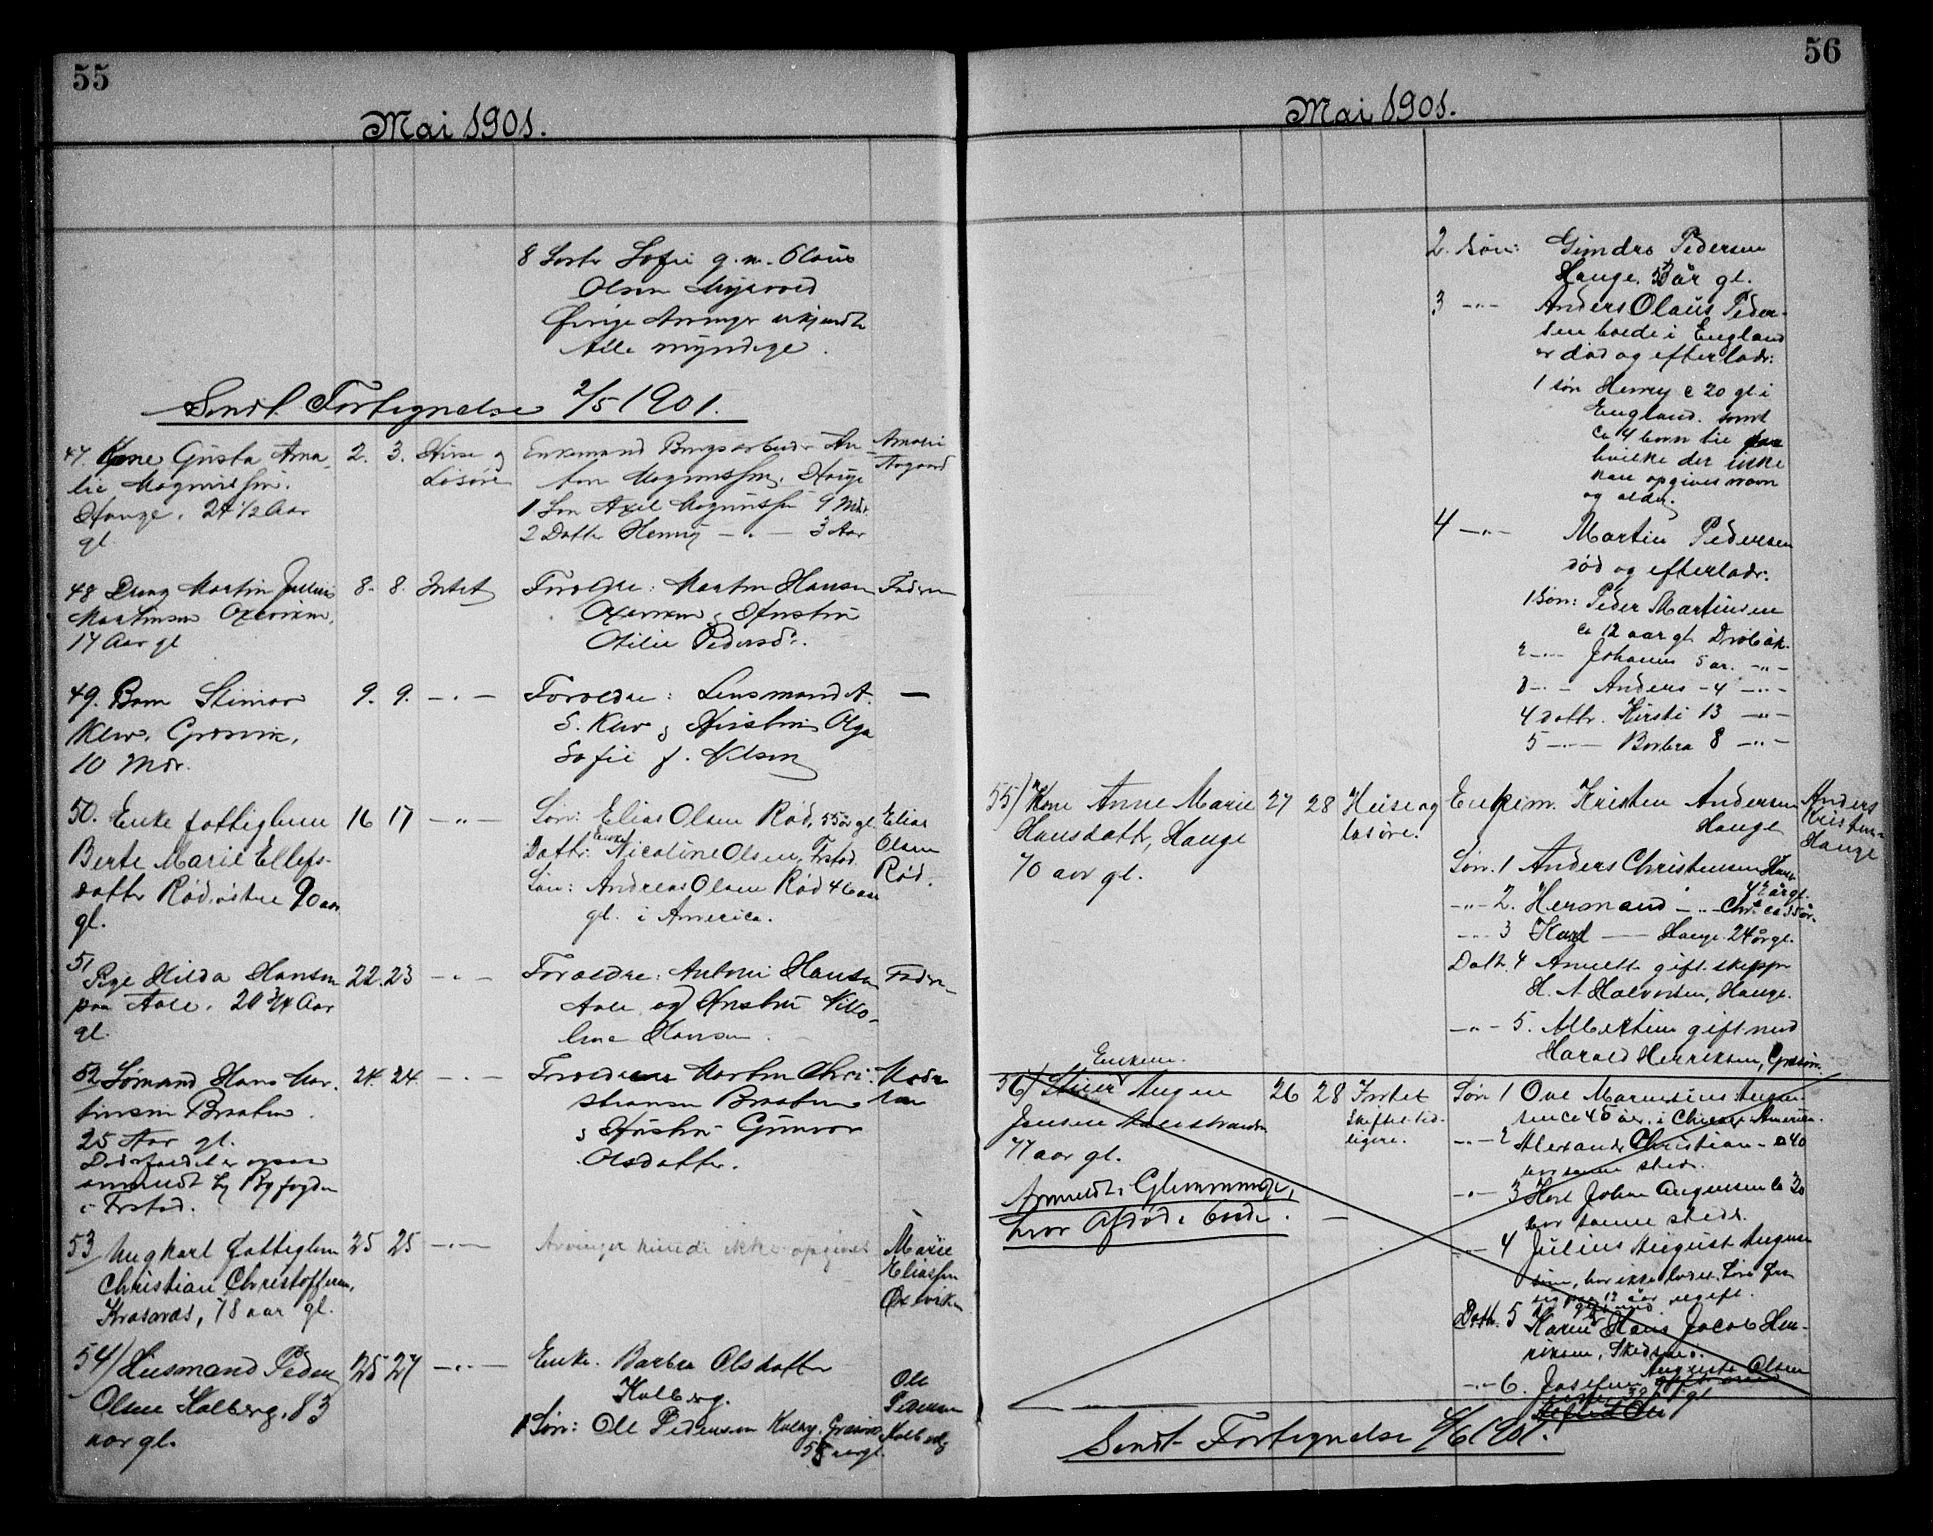 55
Mai 1901.
8 Søster Sofie g. m. Olaus
Olsen
Øvrige Arvinger
Alle myndige.
Sendt Fortegnelse 2/5 1901.
47. Kone Gusta Ama-
lie Magnussen.
Hauge. 24 1/2 Aar
gl.
2. 3. Huse og
Løsøre
Enkemand An-
ton Magnussen, Hauge
1 Søn Axel Magnussen 9 Mdr.
2 Datter Henny — " — 3 Aar
Amalie
Aagaard
48 Dreng Martin Julius
Martinsen Oxeviken,
17 Aar gl
8. 8. Intet
Forældre: Martin Hansen
Oxeviken & Hustru
Otilie Pedersd:.
Faderen
49. Barn
Græsvik,
10 Mdr.
9. 9. — " —
Forældre: Lensmand A.
S. & Hustru Olga
Sofie f. Nilsen
—
50. Enke fattiglem
Berte Marie Ellefs-
datter Rød østre 90 aar
gl.
16 17 — " —
Søn: Elias Olsen Rød, 55 år gl.
Datter: Enke Nicoline Olsen, Frstad
Søn: Andreas Olsen Rød 46 aar
gl. i America.
Elias
Olsen
Rød.
51
Pige Hilda Hansen
paa Aale. 20 3/4 Aar
gl.
22. 23 — " —
Forældre: Antoni Hansen
Aale og Hustru
Hansen.
Faderen
52 Sømand Hans Mar-
tinsen Braaten.
25 Aar gl.
Dødsfaldet er ogsaa
anmeldt by Byfogden
i Frstad.
24. 24. — " —
Forældre Martin Chri-
stiansen Braaten
& Hustru Gunvor
Olsdatter.
Mode-
ren
53 Ungkarl fattiglem
Christian Christoffersen,
Kraakenæs, 78 aar gl.
25 25 — " —
Arvinger kunde ikke opgives
Marie
Eliassen
Oxeviken
54) Husmand Peder
Olsen Kalberg, 83
aar gl.
25 27 — " —
Enke. Barbra Olsdatter
Kalberg.
1 Søn: Ole Pedersen Kalberg, Græsvik
55 aar gl.
Ole
Pedersen
Kalberg
56
Mai 1901.
2. Søn: Gunder Pedersen
Hauge, år gl.
3 — " — Anders Olaus Peder-
sen boede i England
er død og efterlader:
1 søn Henry c 20 gl. i
England. samt
ca 4 børn til
hvilke der ikke
kan opgives navn
og alder.
4 — " — Martin Pedersen
død og efterlader:
1 Søn: Peder Martinsen
ca 12 aar gl. Drøbak.
2 — " — Johannes 5 ar. — " —
3 — " — Anders — 4 — " —
4 dattr. Kirsti 13 — " —
5 — " — Barbra 8 — " —
55) Kone Anne Marie
Hansdattr, Hauge
70 aar gl.
27 28 Huse og
løsøre.
Enkem. Kristen Andersen
Hauge
Søn. 1 Anders Christensen Hauge
år gl.
— " — 2. Hermand — " — Chr. ca 35 år.
— " — 3 Karl — Hauge 24 år gl.
Datt. 4 Annette gift skippr
H. A Halvorsen, Hauge.
— " — 5. Albertine gift med
Harald Henriksen, Græsvik.
Anders
Kristen-
Hauge
Enkem.
56) Stuer Augen
Jensen
77 aar gl.
Anmeldt i Glemminge,
hvor Afdøde boede.
26 28 Intet
skiftet tid-
ligere.
—
Søn 1 Ove Marensius Augen-
sen ca 45 år. i Chicago America.
— " — 2 Alexander Christian — a 40
aar samme sted.
— " — 3 Karl Johan Augensen ca 30
aar samme steds.
— " — 4 Julius August Augen-
sen, har ikke ladet høre fra
sig paa 12 år ugift.
Dattr. 5 Karen gift med Hans Jacob Hen-
riksen,
— " — 6. Josefine Auguste Olsen
gl
Sendt Fortegnelse 4/6 1901.